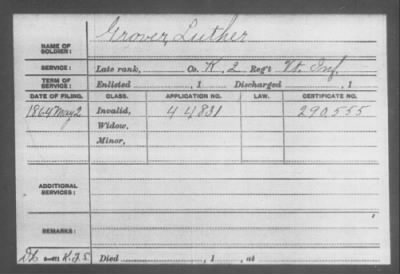 Grover, Luther
NAME OF SOLDIER:
SERVICE: Late rank, Co. K, 2 Reg't Vt. Inf.
TERM OF SERVICE: Enlisted , 1 Discharged , 1
DATE OF FILING. CLASS. APPLICATION NO. LAW. CERTIFICATE NO.
1864 May 2 Invalid, 44831 290.555
Widow,
Minor,
ADDITIONAL SERVICES:
REMARKS:
Died , 1 , at